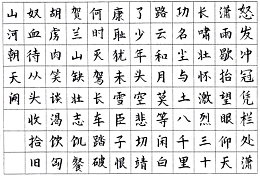 怒发冲冠凭栏处潇
潇雨歇抬望眼仰天
长啸壮怀激烈三十
功名尘与土八千里
路云和月莫等闲白
了少年头空悲切靖
康耻犹未雪臣子恨
何时灭驾长车踏破
贺兰山缺壮志饥餐
胡虏肉笑谈渴饮匈
奴血待从头收拾旧
山河朝天阙